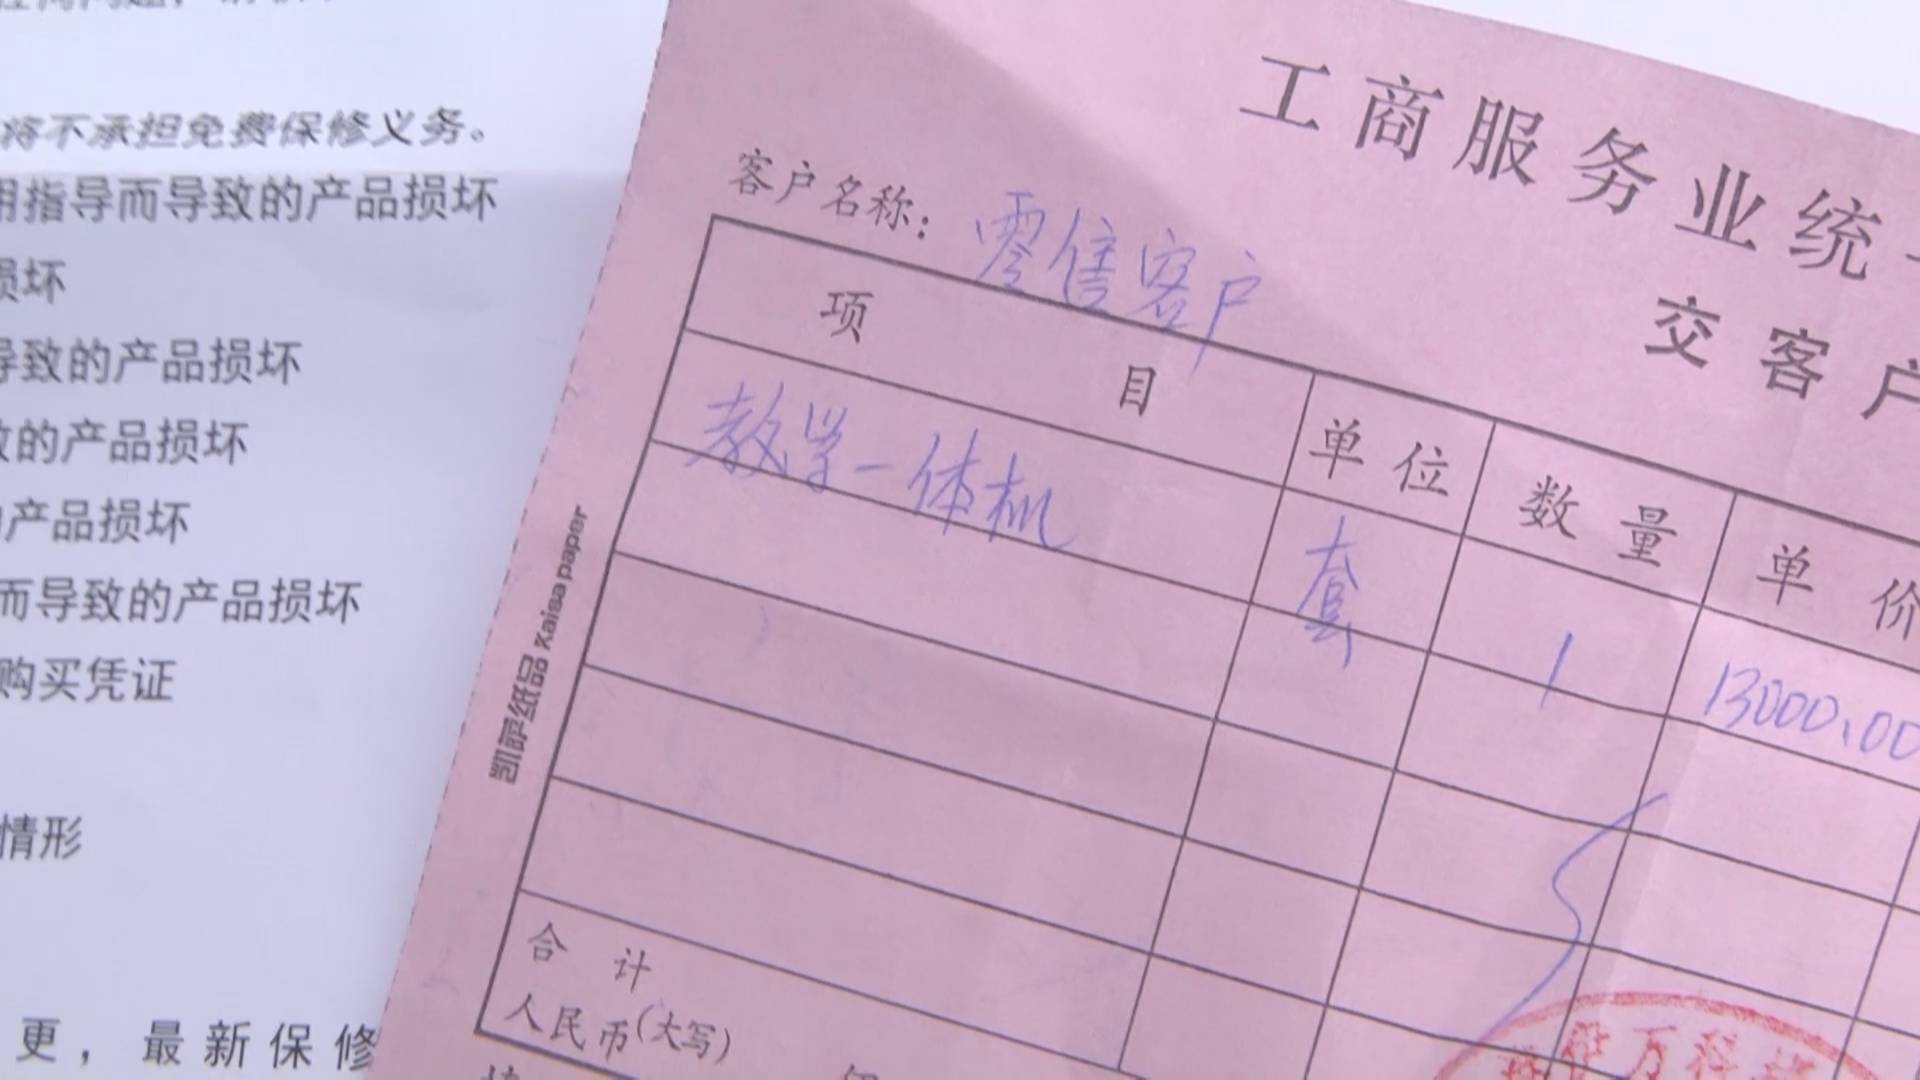 将不承担免费保修义务。
用指导而导致的产品损坏
损坏
导致的产品损坏
致的产品损坏
产品损坏
而导致的产品损坏
购买凭证
情形
更，最新保修
工商服务业统
交客户
客户名称：零售客户
项目 单位 数量 单价
教学一体机 套 1 13000.00
合计
人民币(大写)
凯萨纸品 Kaisa paper
万科